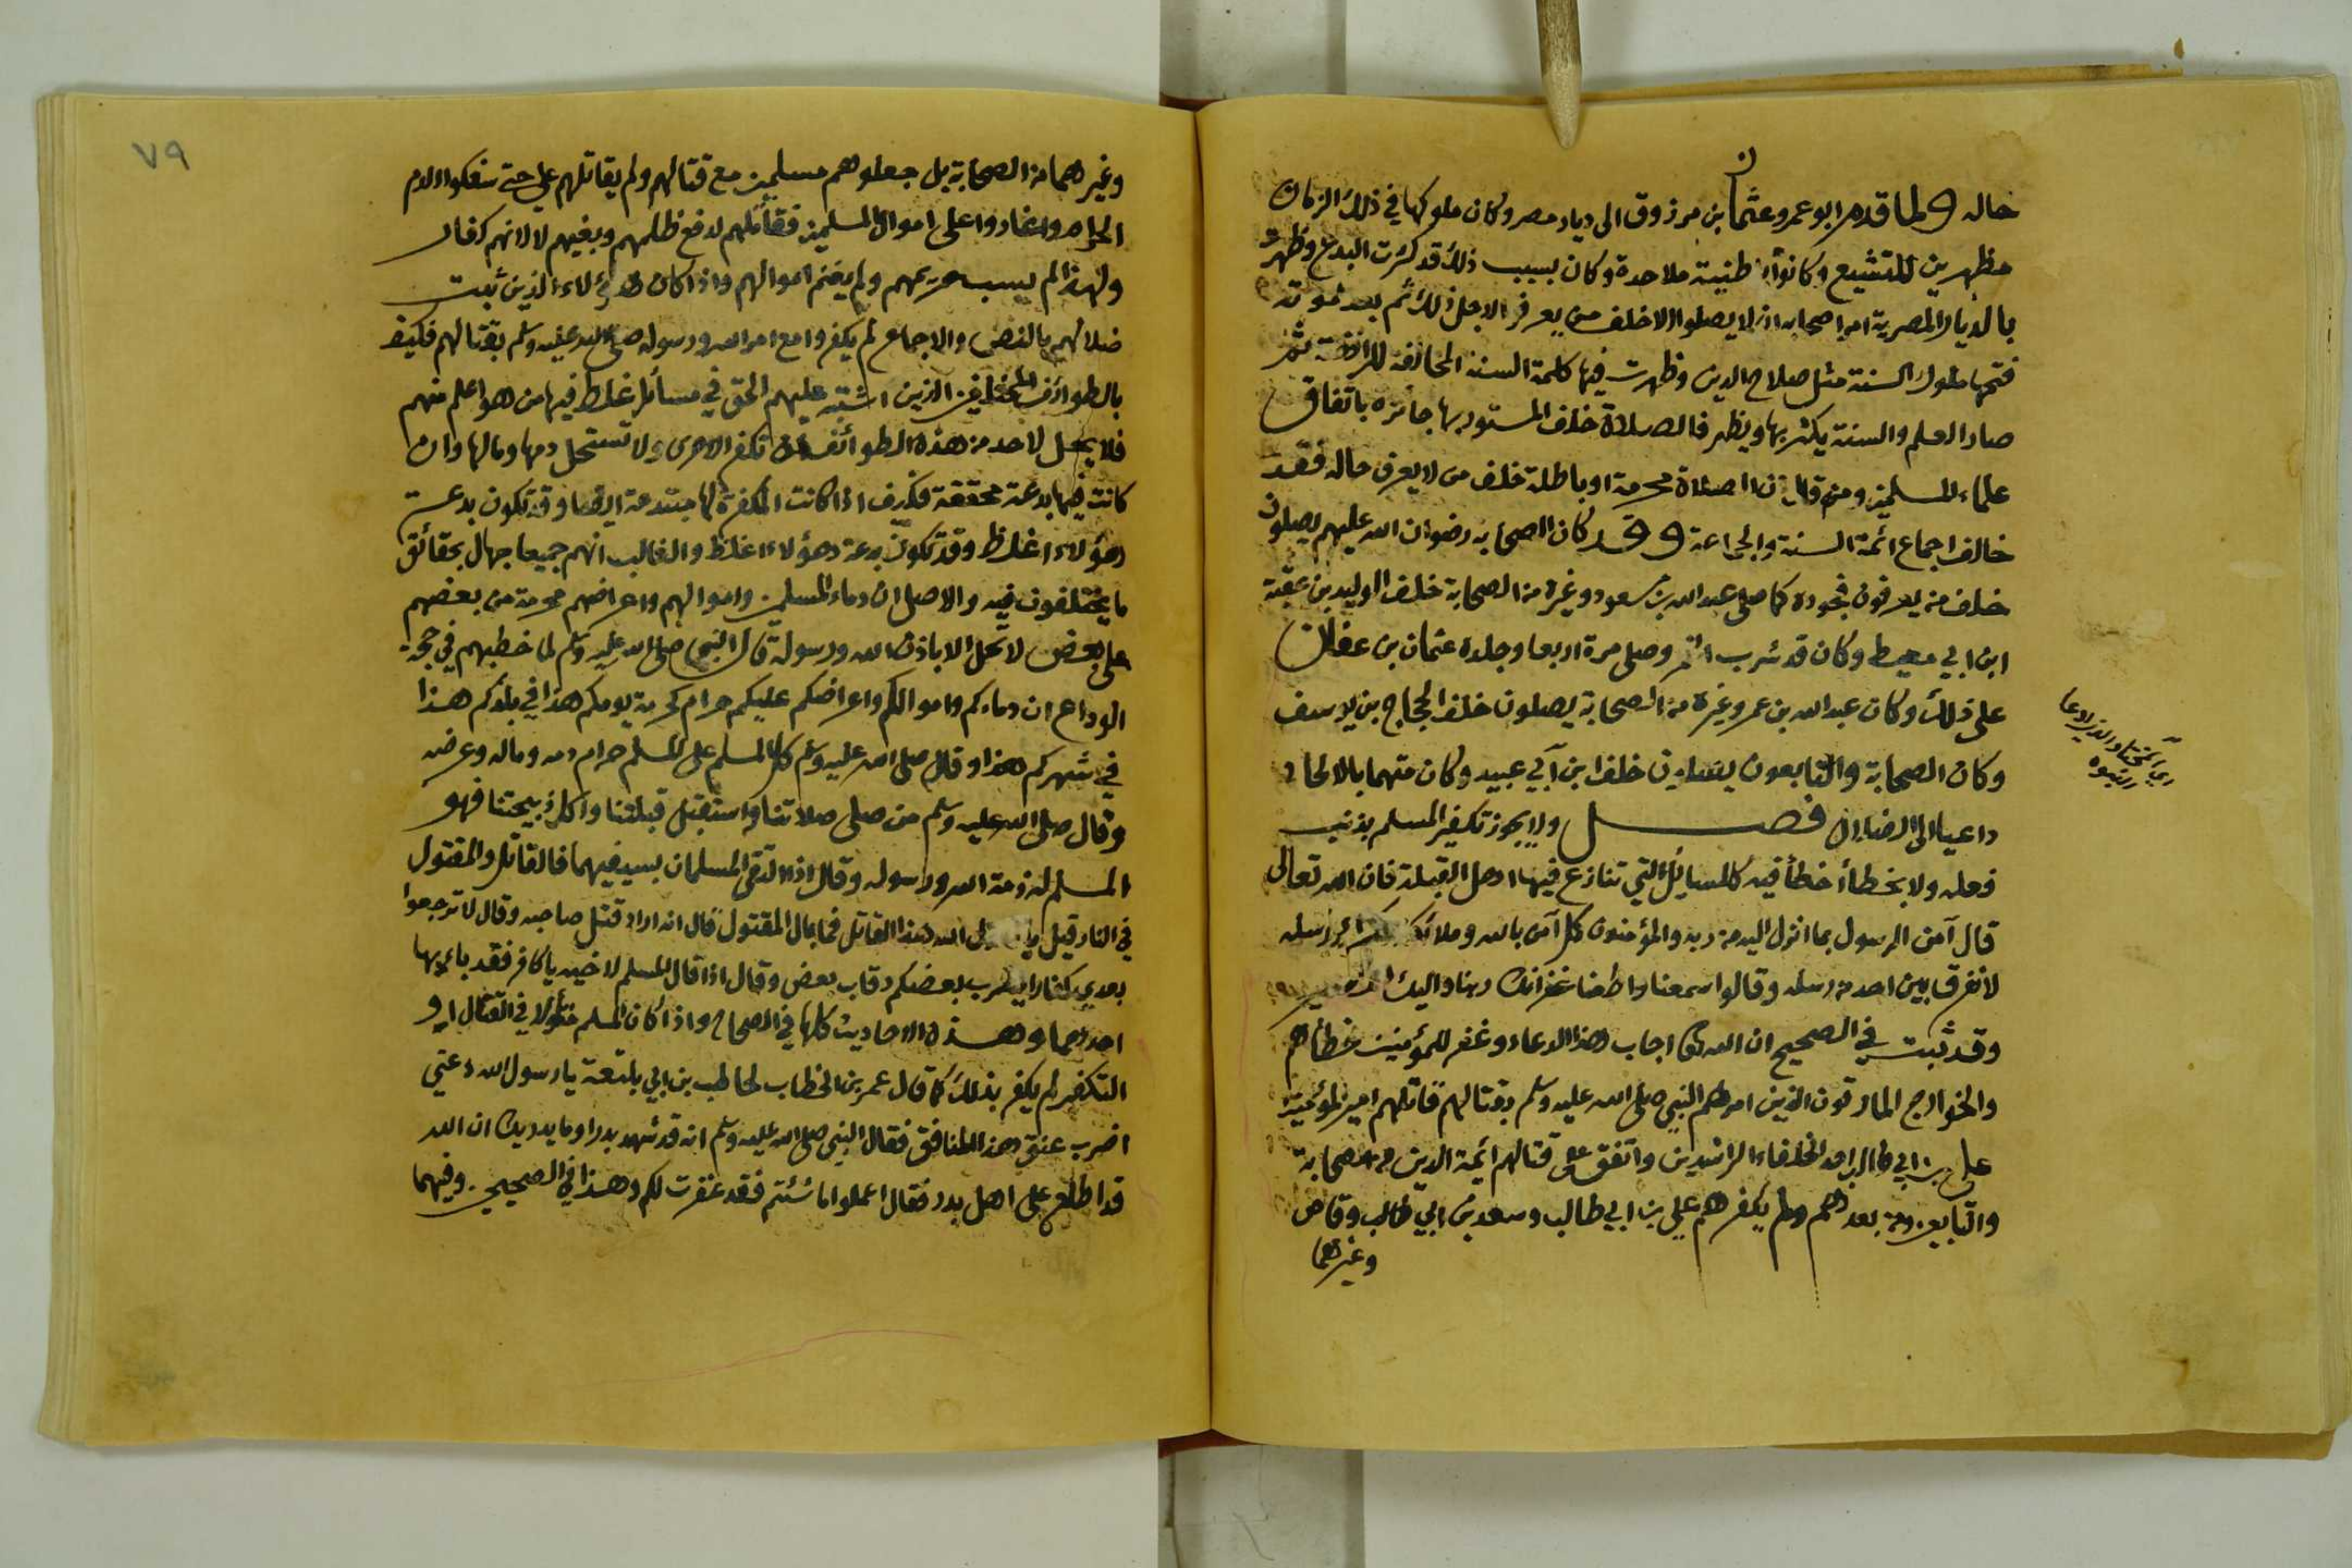 حاله ولما قدم ابو عمرو عثمان بن مرزوق الى ديار مصر وكان ملوكها في ذلك الزمان
مظهرين للتشيع وكانوا باطنية ملاحدة وكان بسبب ذلك قد كثرت البدع وظهرت
بالديار المصرية امر اصحابه ان لا يصلوا الا خلف من يعرفه لاجل ذلك ثم بعد موته
فتحها ملوك السنة مثل صلاح الدين وظهرت فيها كلمة السنة المخالفة للرافضة ثم
صار العلم والسنة يكثر بها ويظهر فالصلاة خلف المستور بها جائزه باتفاق
علماء المسلمين ومن قال ان الصلاة محرمة او باطلة خلف من لا يعرف حاله فقد
خالف اجماع ائمة السنة والجماعة وقد كان الصحابه رضوان الله عليهم يصلون
خلف من يعرفون فجوره كما صلى عبد الله بن مسعود وغيره من الصحابة خلف الوليد بن عقبة
ابن ابي معيط وكان قد شرب الخمر وصلى مرة اربعا وجلده عثمان بن عفان
على ذلك وكان عبد الله بن عمر وغيره من الصحابة يصلون خلف الحجاج بن يوسف
وكان الصحابة والتابعون يصلون خلف ابن أبي عبيد وكان متهما بالالحاد
داعيا الى الضلال فصل ولا يجوز تكفير المسلم بذنب
فعله ولا بخطأ أخطأ فيه كالمسايل التي تنازع فيها اهل القبلة فان الله تعالى
قال آمن الرسول بما انزل اليه من ربه والمؤمنون كل آمن بالله وملائكته ورسله
لا نفرق بين احد من رسله وقالوا سمعنا واطعنا غفرانك ربنا واليك المصير
وقد ثبت في الصحيح ان الله تعا اجاب هذا الدعاء وغفر للمؤمنين خطأهم
والخوارج المارقون الذين امر النبي صلى الله عليه وسلم بقتالهم قاتلهم امير المؤمنين
علي بن ابي طالب احد الخلفاء الراشدين واتفق على قتالهم ائمة الدين من الصحابة
والتابعين ومن بعدهم ولم يكفرهم علي بن ابي طالب وسعد بن ابي وقاص
وغيرهما
اي المختار الذي ادعا
النبوه
٧٩
وغيرهما من الصحابة بل جعلوهم مسلمين مع قتالهم ولم يقاتلهم علي حتى سفكوا الدم
الحرام واغاروا على اموال المسلمين فقاتلهم لدفع ظلمهم وبغيهم لا لانهم كفار
ولهذا لم يسب حريمهم ولم يغنم اموالهم واذا كان هؤلاء الذين ثبت
ضلالهم بالنص والاجماع لم يكفروا مع امر الله ورسوله صلى الله عليه وسلم بقتالهم فكيف
بالطوائف المختلفين الذين اشتبه عليهم الحق في مسائل غلط فيها من هو اعلم منهم
فلا يحل لاحد من هذه الطوائف ان تكفر الاخرى ولا تستحل دمها ومالها وان
كانت فيها بدعة محققة فكيف اذا كانت المكفرة لها مبتدعة ايضا وقد تكون بدعة
هؤلاء اغلظ وقد تكون بدعة هؤلاء اغلظ والغالب انهم جميعا جهال بحقائق
ما يختلفون فيه والاصل ان دماء المسلمين واموالهم واعراضهم محرمة من بعضهم
على بعض لا تحل الا باذن الله ورسوله قال النبي صلى الله عليه وسلم لما خطبهم في حجة
الوداع ان دماءكم واموالكم واعراضكم عليكم حرام كحرمة يومكم هذا في بلدكم هذا
في شهركم هذا وقال صلى الله عليه وسلم كل المسلم على المسلم حرام دمه وماله وعرضه
وقال صلى الله عليه وسلم من صلى صلاتنا واستقبل قبلتنا واكل ذبيحتنا فهو
المسلم له ذمة الله ورسوله وقال اذا التقى المسلمان بسيفيهما فالقاتل والمقتول
في النار قيل يا رسول الله هذا القاتل فما بال المقتول قال انه اراد قتل صاحبه وقال لا ترجعوا
بعدي كفارا يضرب بعضكم رقاب بعض وقال اذا قال المسلم لاخيه يا كافر فقد باء بها
احدهما وهذه الاحاديث كلها في الصحاح واذا كان المسلم متأولا في القتال او
التكفير لم يكفر بذلك كما قال عمر بن الخطاب لحاطب بن ابي بلتعة يا رسول الله دعني
اضرب عنق هذا المنافق فقال النبي صلى الله عليه وسلم انه قد شهد بدرا وما يدريك ان الله
قد اطلع على اهل بدر فقال اعملوا ما شئتم فقد غفرت لكم وهذا في الصحيحين وفيهما